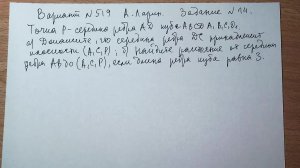 Вариант №519 А. Ларин. Задание №14.
Точка P- середина ребра AD куба ABCDA₁B₁C₁D₁
а) Докажите, что середина ребра DC принадлежит
плоскости (A₁C₁P), б) Найдите расстояние от середины
ребра AB до (A₁C₁P), если длина ребра куба равна 3.